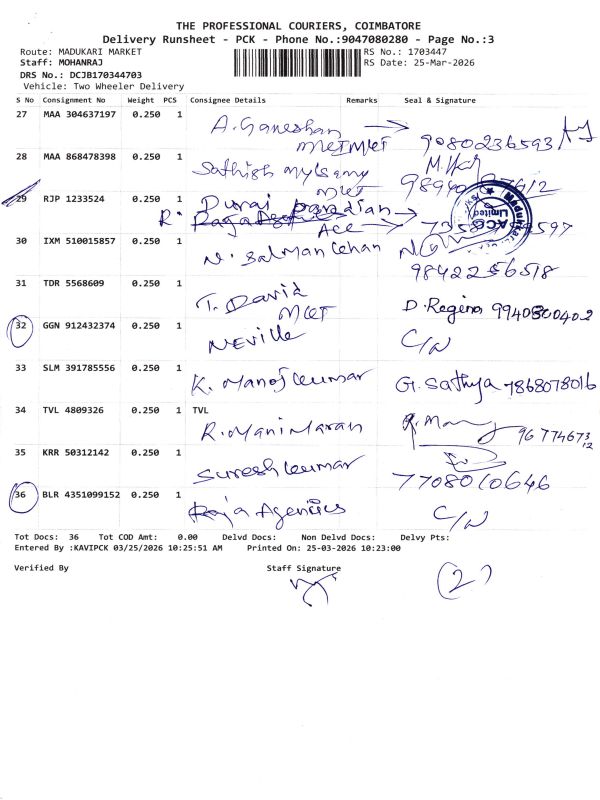 THE PROFESSIONAL COURIERS, COIMBATORE
Delivery Runsheet - PCK - Phone No.:9047080280 - Page No.:3
Route: MADUKARI MARKET RS No.: 1703447
Staff: MOHANRAJ RS Date: 25-Mar-2026
DRS No.: DCJB170344703
Vehicle: Two Wheeler Delivery
S No Consignment No Weight PCS Consignee Details Remarks Seal & Signature
27 MAA 304637197 0.250 1 A. Ganeshan
9080236593
28 MAA 868478398 0.250 1 Sathish
29 RJP 1233524 0.250 1 Durai pandian
Ace
ACC Limited
30 IXM 510015857 0.250 1 N. Salman Khan
9842256518
31 TDR 5568609 0.250 1 T. David D. Regina 9940800402
32 GGN 912432374 0.250 1 Neville C/N
33 SLM 391785556 0.250 1 K. Manoj kumar G. Sathya 7868078016
34 TVL 4809326 0.250 1 TVL
R. Manimaran
35 KRR 50312142 0.250 1 Suresh kumar 7708010646
36 BLR 4351099152 0.250 1 Raja Agencies C/N
Tot Docs: 36 Tot COD Amt: 0.00 Delvd Docs: Non Delvd Docs: Delvy Pts:
Entered By :KAVIPCK 03/25/2026 10:25:51 AM Printed On: 25-03-2026 10:23:00
Verified By Staff Signature
(2)